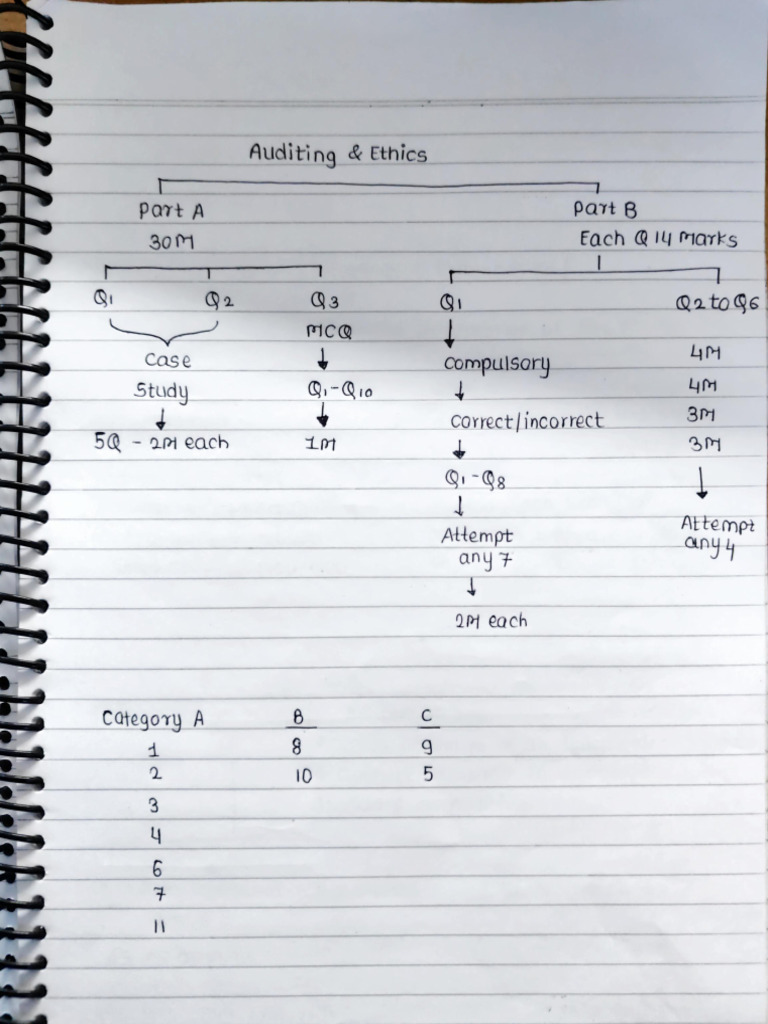 Auditing & Ethics
Part A
30M
Q1 Q2 Q3
Case
Study
5Q - 2M each
MCQ
Q1-Q10
1M
Part B
Each Q 14 Marks
Q1
Compulsory
correct/incorrect
Q1-Q8
Attempt
any 7
2M each
Q2 to Q6
4M
4M
3M
3M
Attempt
any 4
Category A B C
1 8 9
2 10 5
3
4
6
7
11